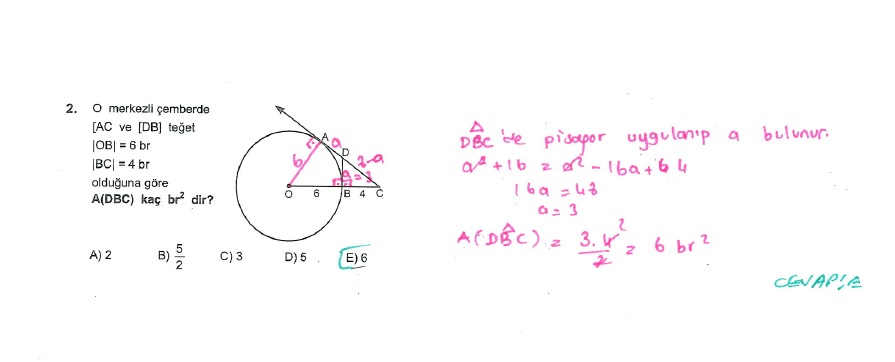 2. O merkezli çemberde
[AC ve [DB] teğet
|OB| = 6 br
|BC| = 4 br
olduğuna göre
A(DBC) kaç br² dir?
A
a
D
8-a
6
a=3
O 6 B 4 C
A) 2 B) 5/2 C) 3 D) 5 E) 6
DBC 'de pisagor uygulanıp a bulunur.
a²+16 = a²-16a+64
16a = 48
a = 3
A(DBC) = 3.4/2 = 6 br²
CEVAP: E